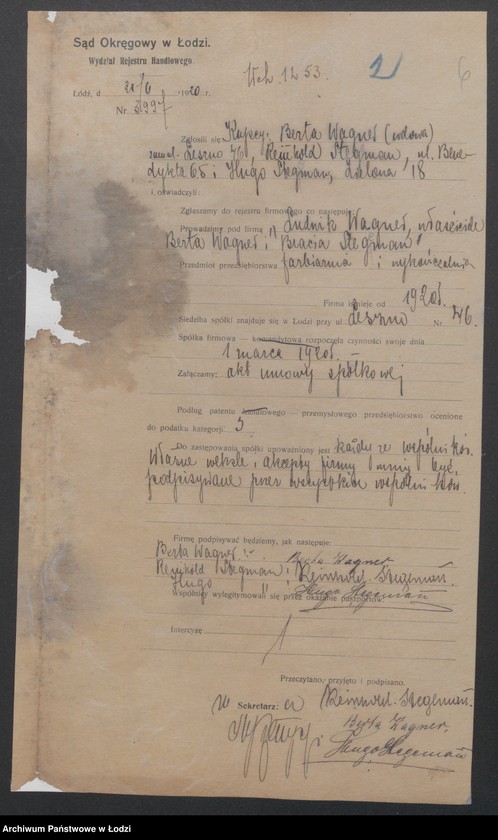 Sąd Okręgowy w Łodzi.
Wydział Rejestru Handlowego.
Wch. 1253
2
6
Łódź, d 21/6 1920 r.
Nr. 3997
Zgłosili się Kupcy: Berta Wagner (wdowa)
zam. ul. Leszno 46, Reinhold Stegman, ul. Bene-
dykta 65 i Hugo Stegman, Zielona 18
i oświadczyli:
Zgłaszamy do rejestru firmowego co następuje:
Prowadzimy pod firmą "Ludwik Wagner, właściciele
Berta Wagner i Bracia Stegman"
Przedmiot przedsiębiorstwa farbiarnia i wykończalnia
Firma istnieje od 1920 r.
Siedziba spółki znajduje się w Łodzi przy ul. Leszno Nr. 46.
Spółka firmowa — komandytowa rozpoczęła czynności swoje dnia
1 marca 1920 r. —
Załączamy: akt umowy spółkowej
Podług patentu handlowego — przemysłowego przedsiębiorstwo ocenione
do podatku kategorji: 5
Do zastępowania spółki upoważniony jest każdy ze wspólników.
Własne weksle, akcepty firmy być
podpisywane przez wszystkich wspólników.
Firmę podpisywać będziemy, jak następuje:
Berta Wagner :- Berta Wagner
Reinhold Stegman: Reinhold Stegeman.
Hugo " : Hugo Stegeman
Wspólnicy wylegitymowali się przez okazanie paszportów.
Intercyzę
Przeczytano, przyjęto i podpisano.
Sekretarz: Reinhold Stegeman.
Berta Wagner,
Hugo Stegeman
Archiwum Państwowe w Łodzi